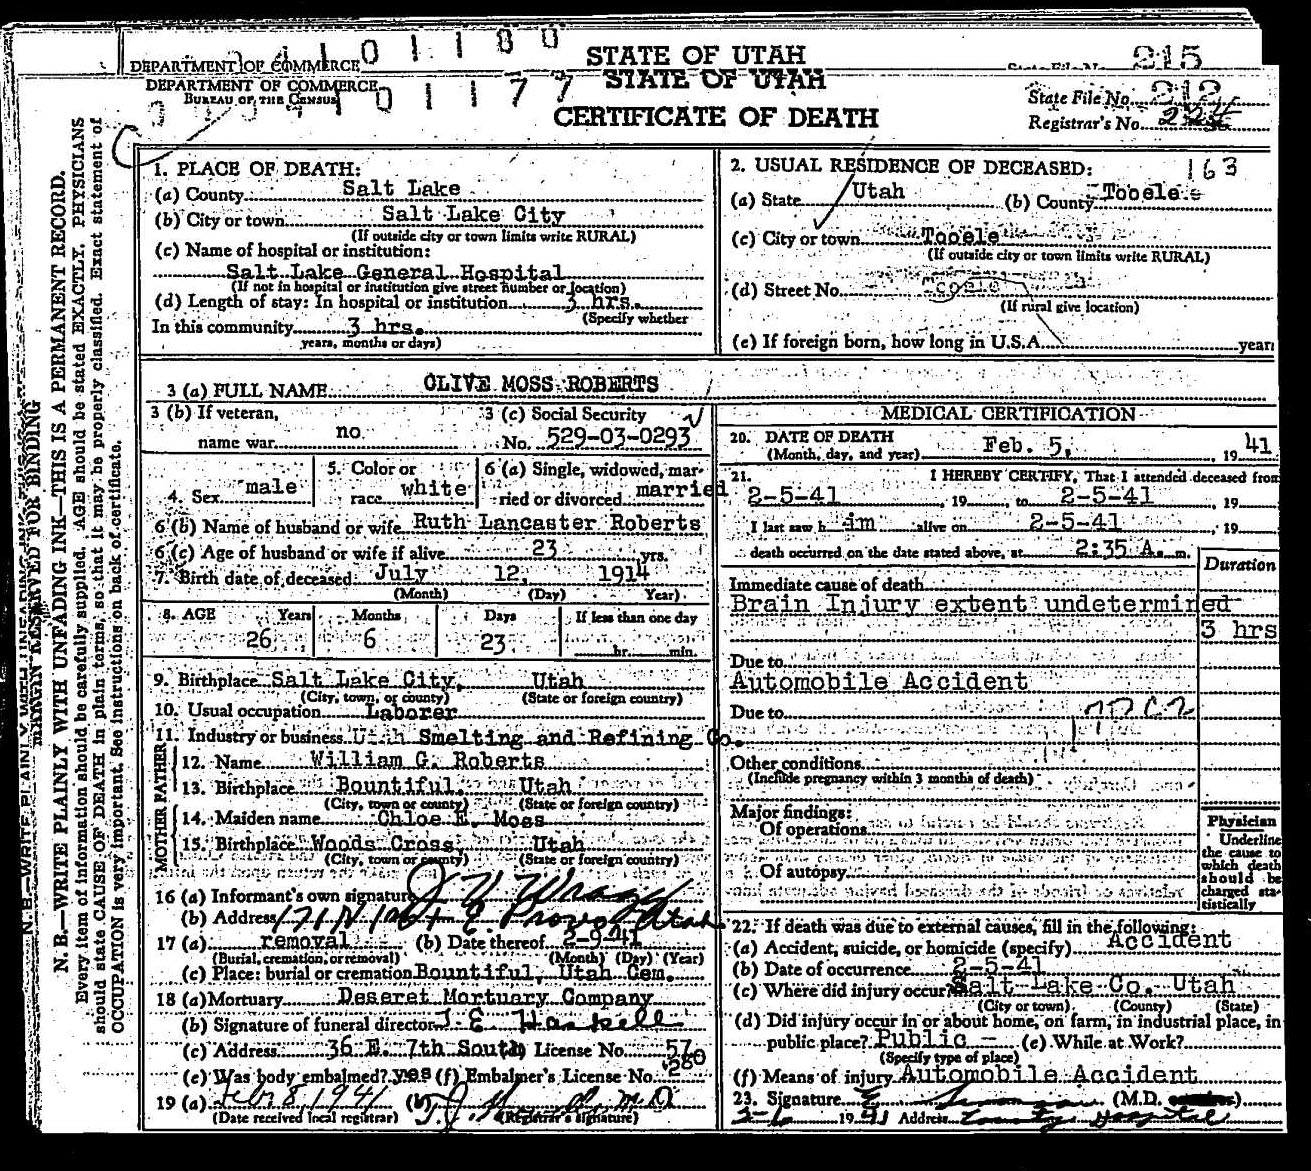 1 0 1 1 8 0
DEPARTMENT OF COMMERCE
STATE OF UTAH
215
DEPARTMENT OF COMMERCE
BUREAU OF THE CENSUS
1 0 1 1 7 7
STATE OF UTAH
CERTIFICATE OF DEATH
State File No. 212
Registrar's No.
163
N. B.—WRITE PLAINLY WITH UNFADING INK—THIS IS A PERMANENT RECORD.
Every item of information should be carefully supplied. AGE should be stated EXACTLY. PHYSICIANS
should state CAUSE OF DEATH in plain terms, so that it may be properly classified. Exact statement of
OCCUPATION is very important. See instructions on back of certificate.
MARGIN RESERVED FOR BINDING
1. PLACE OF DEATH:
(a) County Salt Lake
(b) City or town Salt Lake City
(If outside city or town limits write RURAL)
(c) Name of hospital or institution:
Salt Lake General Hospital
(If not in hospital or institution give street number or location)
(d) Length of stay: In hospital or institution 3 hrs.
(Specify whether
In this community 3 hrs.
years, months or days)
2. USUAL RESIDENCE OF DECEASED:
(a) State Utah (b) County Tooele
(c) City or town Tooele
(If outside city or town limits write RURAL)
(d) Street No. Tooele
(If rural give location)
(e) If foreign born, how long in U.S.A. years
3 (a) FULL NAME OLIVE MOSS ROBERTS
3 (b) If veteran,
name war no
3 (c) Social Security
No. 529-03-0293
4. Sex male
5. Color or
race white
6 (a) Single, widowed, mar-
ried or divorced married
6 (b) Name of husband or wife Ruth Lancaster Roberts
6 (c) Age of husband or wife if alive 23 yrs.
7. Birth date of deceased July 12, 1914
(Month) (Day) (Year)
8. AGE Years Months Days If less than one day
26 6 23 hr. min.
9. Birthplace Salt Lake City, Utah
(City, town, or county) (State or foreign country)
10. Usual occupation Laborer
11. Industry or business Utah Smelting and Refining Co.
FATHER
12. Name William G. Roberts
13. Birthplace Bountiful Utah
(City, town or county) (State or foreign country)
MOTHER
14. Maiden name Chloe E. Moss
15. Birthplace Woods Cross, Utah
(City, town or county) (State or foreign country)
16 (a) Informant's own signature
(b) Address Provo, Utah
17 (a) removal (b) Date thereof 2-9-41
(Burial, cremation, or removal) (Month) (Day) (Year)
(c) Place: burial or cremation Bountiful, Utah Cem.
18 (a) Mortuary Deseret Mortuary Company
(b) Signature of funeral director J. E. Haskell
(c) Address 36 E. 7th South License No. 57
(e) Was body embalmed? yes (f) Embalmer's License No. 280
19 (a) Feb 8, 1941 (b) M D
(Date received local registrar) (Registrar's signature)
MEDICAL CERTIFICATION
20. DATE OF DEATH
(Month, day, and year) Feb. 5, 1941
21. I HEREBY CERTIFY, That I attended deceased from
2-5-41, 19 to 2-5-41, 19
I last saw him alive on 2-5-41, 19
death occurred on the date stated above, at 2:35 A. m.
Duration
Immediate cause of death
Brain Injury extent undetermined
3 hrs
Due to
Automobile Accident
Due to
Other conditions
(Include pregnancy within 3 months of death)
Major findings:
Of operations
Of autopsy
Physician
Underline
the cause to
which death
should be
charged sta-
tistically
22. If death was due to external causes, fill in the following:
(a) Accident, suicide, or homicide (specify) Accident
(b) Date of occurrence 2-5-41
(c) Where did injury occur? Salt Lake Co. Utah
(City or town) (County) (State)
(d) Did injury occur in or about home, on farm, in industrial place, in
public place? Public — (e) While at Work?
(Specify type of place)
(f) Means of injury Automobile Accident
23. Signature (M.D.
2-6 1941 Address County Hospital